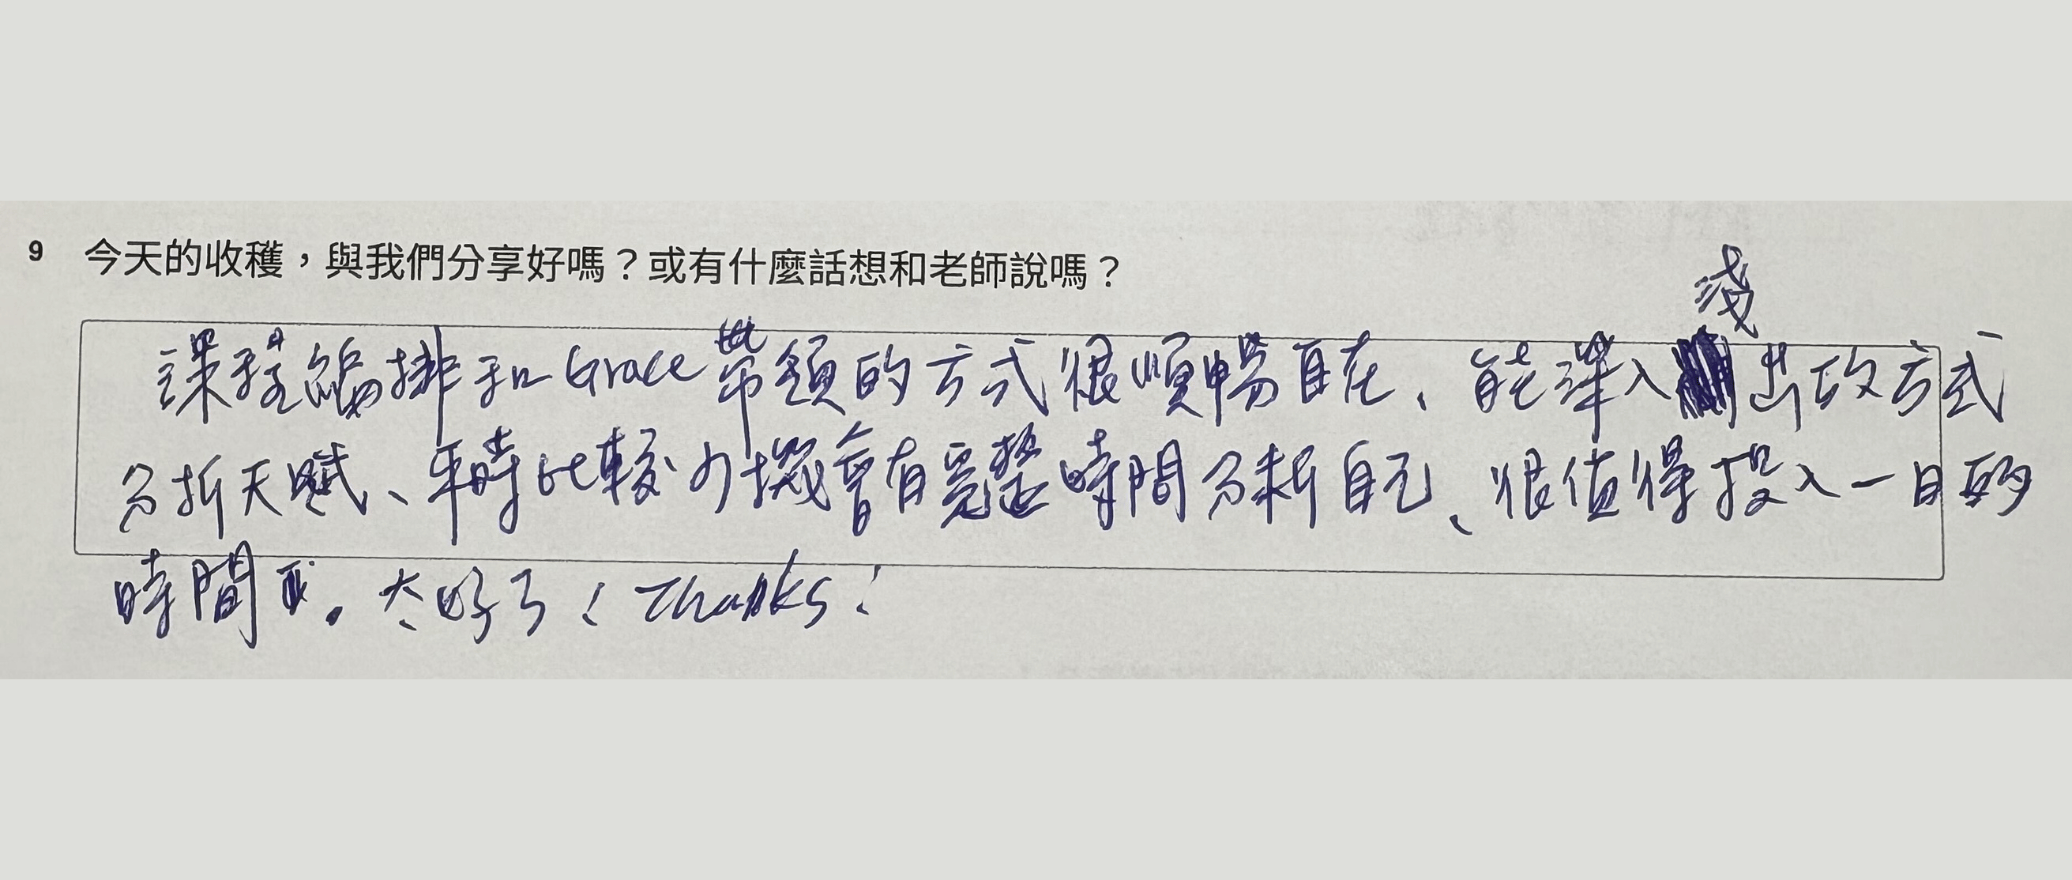 9 今天的收穫，與我們分享好嗎？或有什麼話想和老師說嗎？
課程編排和Grace帶領的方式很順暢自在、能深入淺出改方式
分析天賦、平時比較少機會有完整時間分析自己、很值得投入一日的
時間。太好了！Thanks！